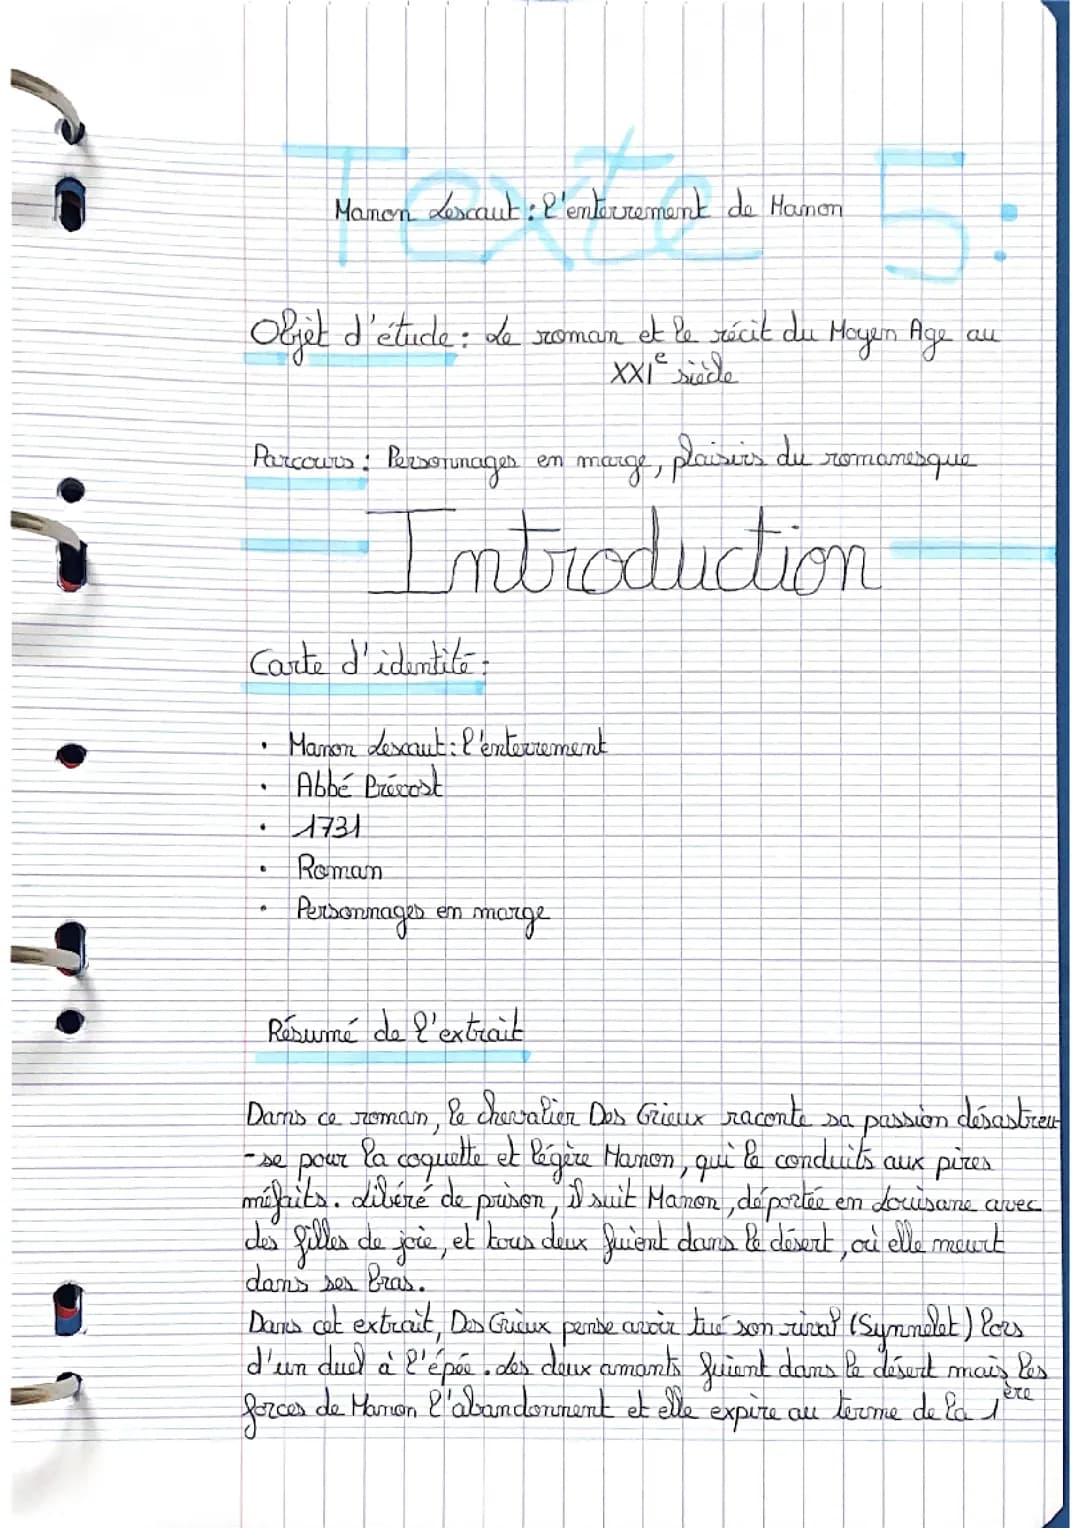 Texte 5:
Manon Lescaut : l'enterrement de Manon
Objet d'étude : Le roman et le récit du Moyen Age au
XXIe siècle
Parcours : Personnages en marge, plaisirs du romanesque
Introduction
Carte d'identité :
• Manon Lescaut : l'enterrement
• Abbé Prévost
• 1731
• Roman
• Personnages en marge
Résumé de l'extrait
Dans ce roman, le chevalier Des Grieux raconte sa passion désastreu-
-se pour la coquette et légère Manon, qui le conduits aux pires
méfaits. Libéré de prison, il suit Manon, déportée en Louisane avec
des filles de joie, et tous deux fuient dans le désert, où elle meurt
dans ses bras.
Dans cet extrait, Des Grieux pense avoir tué son rival (Symmelet) lors
d'un duel à l'épée. Les deux amants fuient dans le désert mais les
forces de Manon l'abandonnent et elle expire au terme de la 1ère